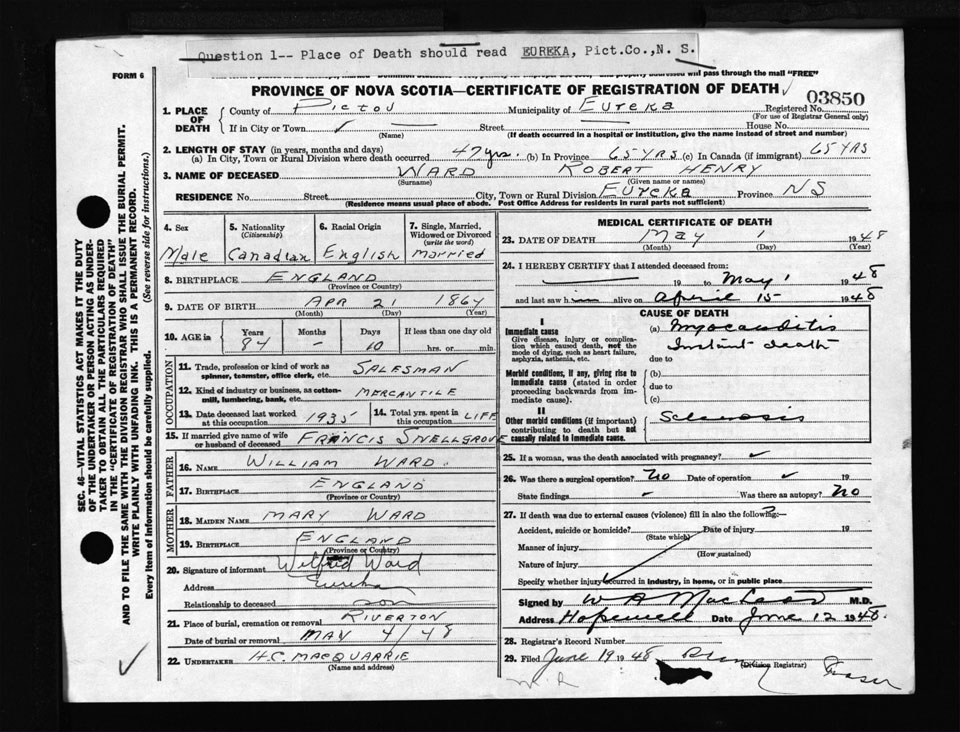 Question 1-- Place of Death should read EUREKA, Pict.Co.,N. S.
FORM 6
will pass through the mail "FREE"
PROVINCE OF NOVA SCOTIA—CERTIFICATE OF REGISTRATION OF DEATH
03850
1. PLACE OF DEATH
County of Pictou Municipality of Eureka Registered No.
(For use of Registrar General only)
If in City or Town Street House No.
(Name) (If death occurred in a hospital or institution, give the name instead of street and number)
2. LENGTH OF STAY (in years, months and days)
(a) In City, Town or Rural Division where death occurred 47 yrs. (b) In Province 65 YRS (c) In Canada (if immigrant) 65 YRS
3. NAME OF DECEASED WARD ROBERT HENRY
(Surname) (Given name or names)
RESIDENCE No. Street City, Town or Rural Division EUREKA Province NS
(Residence means usual place of abode. Post Office Address for residents in rural parts not sufficient)
4. Sex
Male
5. Nationality
(Citizenship)
Canadian
6. Racial Origin
English
7. Single, Married, Widowed or Divorced
(write the word)
Married
8. BIRTHPLACE ENGLAND
(Province or Country)
9. DATE OF BIRTH APR 21 1864
(Month) (Day) (Year)
10. AGE in Years Months Days If less than one day old
84 - 10 hrs. or min.
OCCUPATION
11. Trade, profession or kind of work as spinner, teamster, office clerk, etc. SALESMAN
12. Kind of industry or business, as cotton-mill, lumbering, bank, etc. MERCANTILE
13. Date deceased last worked at this occupation 1935 14. Total yrs. spent in this occupation LIFE
15. If married give name of wife or husband of deceased FRANCIS SNELLGROVE
FATHER
16. Name WILLIAM WARD
17. Birthplace ENGLAND
(Province or Country)
MOTHER
18. Maiden Name MARY WARD
19. Birthplace ENGLAND
(Province or Country)
20. Signature of informant Wilfred Ward
Address Eureka
Relationship to deceased son
21. Place of burial, cremation or removal RIVERTON
Date of burial or removal MAY 4/48
22. UNDERTAKER H.C. MACQUARRIE
(Name and address)
MEDICAL CERTIFICATE OF DEATH
23. DATE OF DEATH May 1 1948
(Month) (Day) (Year)
24. I HEREBY CERTIFY that I attended deceased from:
19 to May 1 1948
and last saw him alive on April 15 1948
CAUSE OF DEATH
I
Immediate cause
Give disease, injury or complication which caused death, not the mode of dying, such as heart failure, asphyxia, asthenia, etc.
(a) Myocarditis
Instant death
due to
Morbid conditions, if any, giving rise to immediate cause (stated in order proceeding backwards from immediate cause).
(b)
due to
(c)
II
Other morbid conditions (if important) contributing to death but not causally related to immediate cause.
Sclerosis
25. If a woman, was the death associated with pregnancy?
26. Was there a surgical operation? No Date of operation 19
State findings - Was there an autopsy? No
27. If death was due to external causes (violence) fill in also the following:—
Accident, suicide or homicide? Date of injury 19
(State which)
Manner of injury
(How sustained)
Nature of injury
Specify whether injury occurred in industry, in home, or in public place
Signed by W A MacLeod M.D.
Address Hopewell Date June 12 1948.
28. Registrar's Record Number
29. Filed June 19 1948
(Division Registrar)
Fraser
SEC. 46—VITAL STATISTICS ACT MAKES IT THE DUTY
OF THE UNDERTAKER OR PERSON ACTING AS UNDER-
TAKER TO OBTAIN ALL THE PARTICULARS REQUIRED
IN THE "CERTIFICATE OF REGISTRATION OF DEATH"
AND TO FILE THE SAME WITH THE DIVISION REGISTRAR WHO SHALL ISSUE THE BURIAL PERMIT.
WRITE PLAINLY WITH UNFADING INK. THIS IS A PERMANENT RECORD.
Every item of information should be carefully supplied. (See reverse side for instructions.)